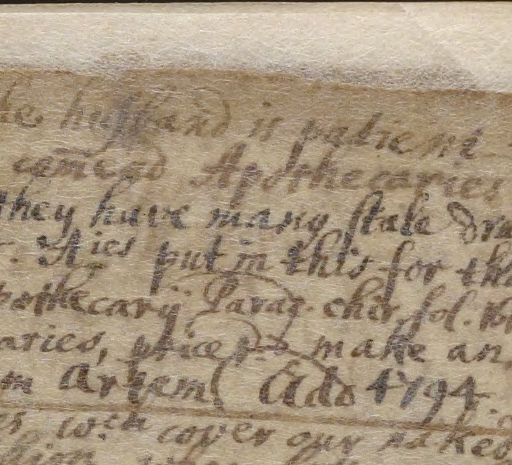 husband is patient
comend Apothecaries
they have many stale dru
put in this for th
pothecary Parac. chir. fol.
aries, price to make an
m Artem Ado 4794.
es wch cover our naked